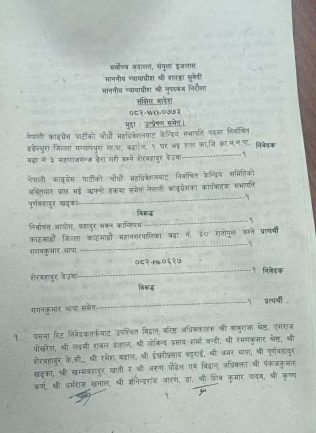 सर्वोच्च अदालत, संयुक्त इजलास
माननीय न्यायाधीश श्री शारङ्गा सुवेदी
माननीय न्यायाधीश श्री नृपध्वज निरौला
संक्षिप्त आदेश
०८२-WO-०७७२
मुद्दा : उत्प्रेषण समेत।
नेपाली काङ्ग्रेस पार्टीको चौधौं महाधिवेशनबाट केन्द्रिय सभापति पदमा निर्वाचित
डडेल्धुरा जिल्ला गन्यापधुरा गा.पा. वडा नं. १ घर भई हाल का.जि.का.म.न.पा.
वडा नं. ३ महाराजगन्ज डेरा गरी बस्ने शेरबहादुर देउवा------------------------१ निवेदक
नेपाली काङ्ग्रेस पार्टीको चौधौं महाधिवेशनबाट निर्वाचित केन्द्रिय समितिको
अख्तियार प्राप्त भई आफ्नो हकमा समेत नेपाली काङ्ग्रेसका कार्यवाहक सभापति
पूर्णबहादुर खड्का------------------------१
विरुद्ध
निर्वाचन आयोग, बहादुर भवन कान्तिपथ ------------------------१
काठमाडौं जिल्ला काठमाडौं महानगरपालिका वडा नं. ३० रातोपुल बस्ने प्रत्यर्थी
गगनकुमार थापा------------------------१
शेरबहादुर देउवा------------------------१ निवेदक
विरुद्ध
गगनकुमार थापा समेत------------------------१ प्रत्यर्थी
१ यसमा रिट निवेदकतर्फबाट उपस्थित विद्वान् वरिष्ठ अधिवक्ताहरू श्री बाबुराजा श्रेष्ठ,
पोखरेल, श्री लक्ष्मी रावल दाहाल, श्री गोविन्द प्रसाद शर्मा बन्दी, श्री रमणकुमार श्रेष्ठ, श्री
शेरबहादुर के.सी., श्री रमेश बडाल, श्री ईश्वरीप्रसाद भट्टराई, श्री अमर थापा, श्री पूर्णबहादुर
खड्का, श्री खम्मबहादुर खाती र श्री अरुण पौडेल एवं विद्वान् अधिवक्ता श्री पंकजकुमार
कर्ण, श्री धर्मराज खनाल, श्री ज्ञानेन्द्रराज आरण, डा. श्री शिव कुमार यादव, श्री कृष्ण
१